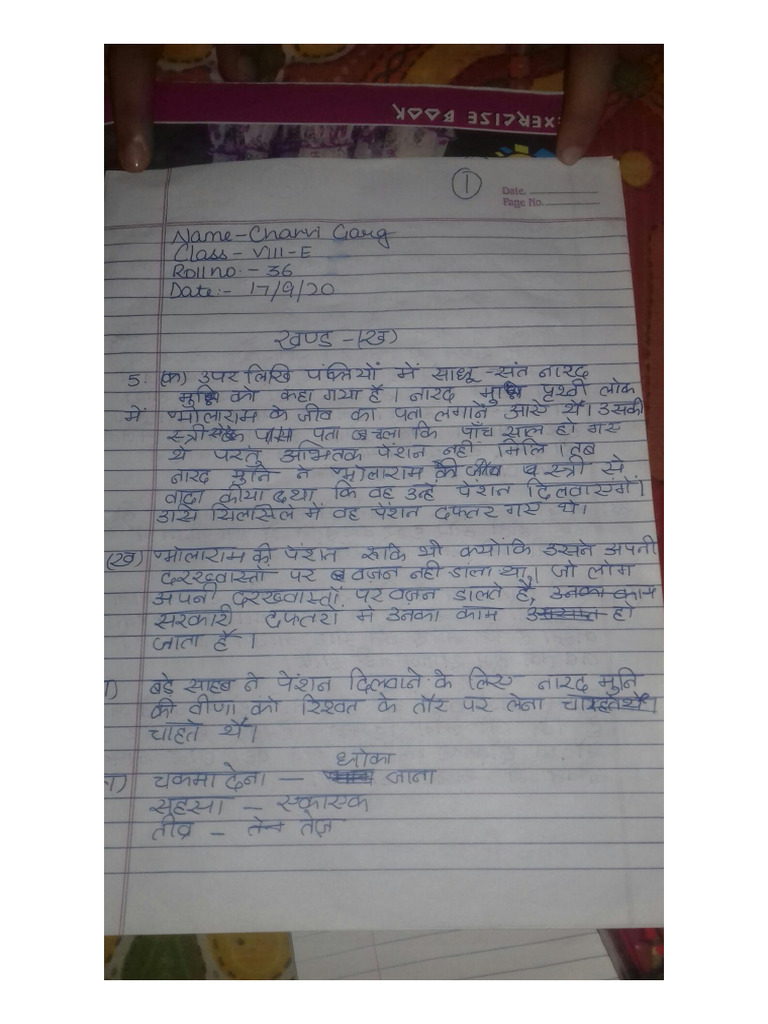 EXERCISE BOOK
1
Date.
Page No.
Name - Charvi Garg
Class - VIII-E
Roll no. - 36
Date:- 17/9/20
खण्ड - (ख)
5. (क) उपर लिखि पंक्तियों में साधू-संत नारद
मुनि को कहा गया है। नारद मुनि पृथ्वी लोक
में भोलाराम के जीव का पता लगाने आऐ थे। उसकी
स्त्री से पता चला कि पाँच साल हो गए
थे परंतु अभितक पेंशन नहीं मिलि। तब
नारद मुनि ने भोलाराम की स्त्री से
वादा कीया था कि वह उन्हें पेंशन दिलवाएंगें।
उसि सिलसिले में वह पेंशन दफतर गए थे।
(ख) भोलाराम की पेंशन रूकि थी क्योंकि उसने अपनी
दरख्वास्तों पर वज़न नही डाला था। जो लोग
अपनी दरख्वास्तों पर वज़न डालते है, उनका काम
सरकारी दफतरों में उनका काम हो
जाता है।
ग) बड़े साहब ने पेंशन दिलवाने के लिए नारद मुनि
की वीणा को रिश्वत के तौर पर लेना चाहते थें।
चाहते थें।
धोका
चकमा देना — जाना
सहसा — एकाएक
तीव्र — तेज़